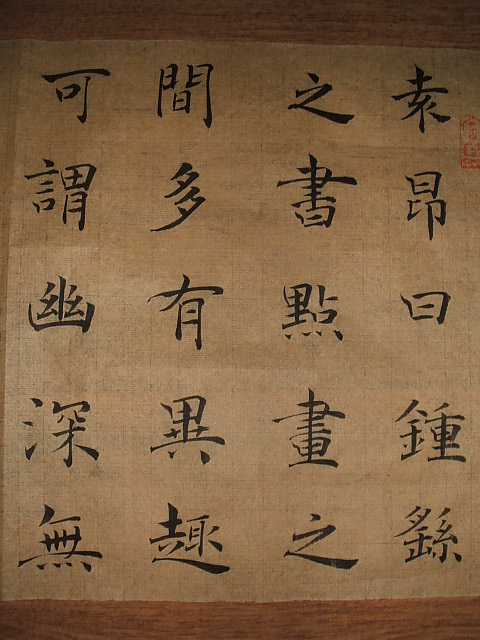 袁昂曰鍾繇
之書點畫之
間多有異趣
可謂幽深無